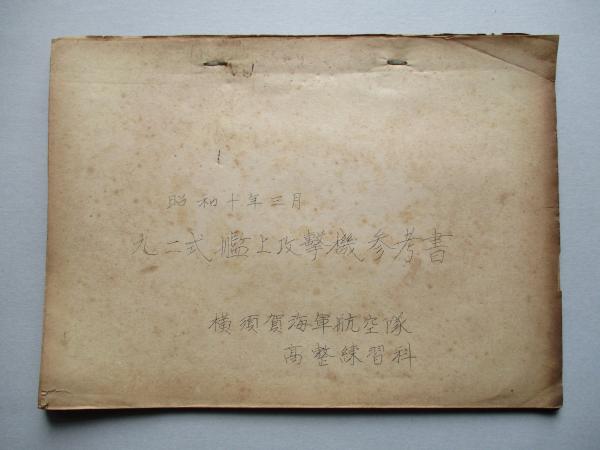 昭和十年三月
九二式艦上攻撃機参考書
横須賀海軍航空隊
高整練習科